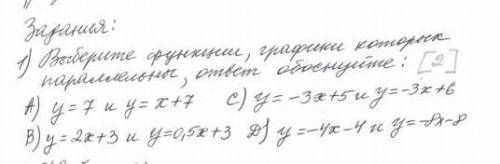 Задания:
1) Выберите функции, графики которых
параллельны, ответ обоснуйте: [2]
А) y=7 и y=x+7 С) y=-3x+5 и y=-3x+6
В) y=2x+3 и y=0,5x+3 Д) y=-4x-4 и y=-8x-8